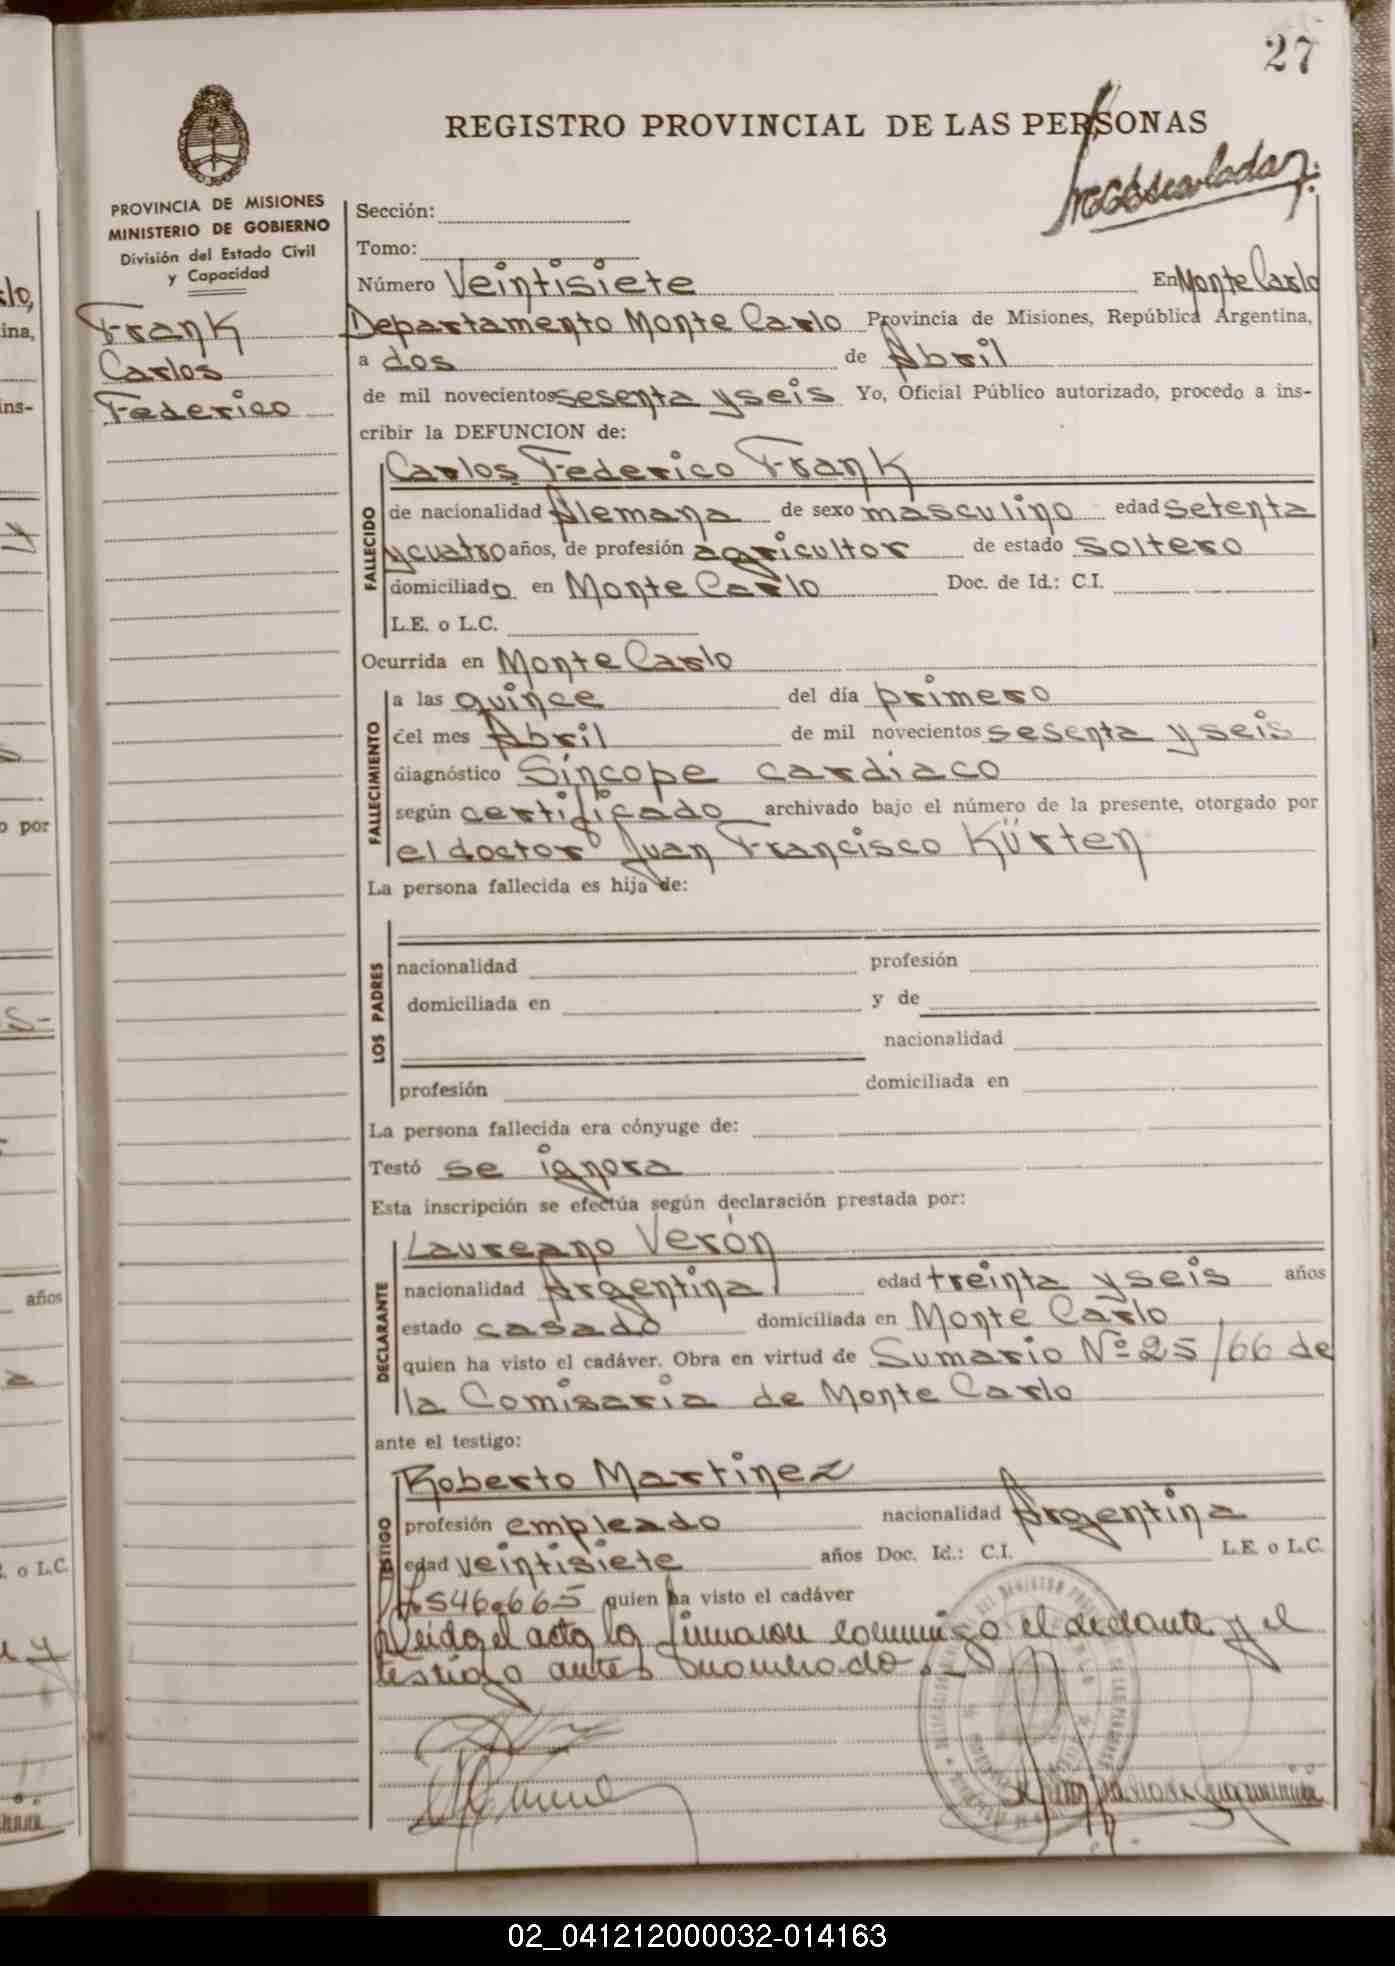 27
REGISTRO PROVINCIAL DE LAS PERSONAS
PROVINCIA DE MISIONES
MINISTERIO DE GOBIERNO
División del Estado Civil
y Capacidad
Frank
Carlos
Federico
Sección:
Tomo:
Número Veintisiete En Monte Carlo
Departamento Monte Carlo Provincia de Misiones, República Argentina,
a dos de Abril
de mil novecientos sesenta y seis Yo, Oficial Público autorizado, procedo a ins-
cribir la DEFUNCION de:
FALLECIDO
Carlos Federico Frank
de nacionalidad Alemana de sexo masculino edad setenta
y cuatro años, de profesión agricultor de estado soltero
domiciliado en Monte Carlo Doc. de Id.: C.I.
L.E. o L.C.
Ocurrida en Monte Carlo
FALLECIMIENTO
a las quince del día primero
del mes Abril de mil novecientos sesenta y seis
diagnóstico Síncope cardiaco
según certificado archivado bajo el número de la presente, otorgado por
el doctor Juan Francisco Kürten
La persona fallecida es hija de:
LOS PADRES
nacionalidad profesión
domiciliada en y de
nacionalidad
profesión domiciliada en
La persona fallecida era cónyuge de:
Testó se ignora
Esta inscripción se efectúa según declaración prestada por:
DECLARANTE
Laureano Verón
nacionalidad Argentina edad treinta y seis años
estado casado domiciliada en Monte Carlo
quien ha visto el cadáver. Obra en virtud de Sumario Nº 25/66 de
la Comisaria de Monte Carlo
ante el testigo:
TESTIGO
Roberto Martinez
profesión empleado nacionalidad Argentina
edad veintisiete años Doc. Id.: C.I. L.E. o L.C.
546.665 quien ha visto el cadáver
Leida el acta la firmaron conmigo el declarante y el
testigo antes nombrado.
02_041212000032-014163